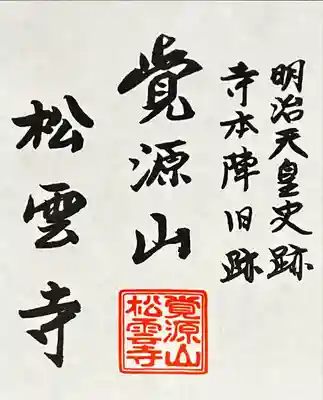 明治天皇史跡
寺本陣旧跡
覚源山
松雲寺
覺源山
松雲寺